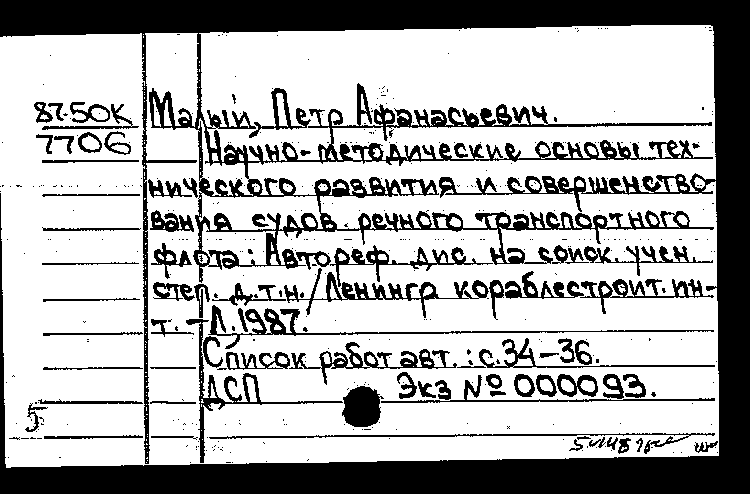 87-50К Малый, Петр Афанасьевич.
7706 Научно-методические основы тех-
нического развития и совершенство-
вания судов речного транспортного
флота: Автореф. дис. на соиск. учен.
степ. д.т.н. / Ленингр кораблестроит. ин-
т. - Л. 1987.
Список работ авт. : с. 34-36.
ДСП Экз № 000093.
5